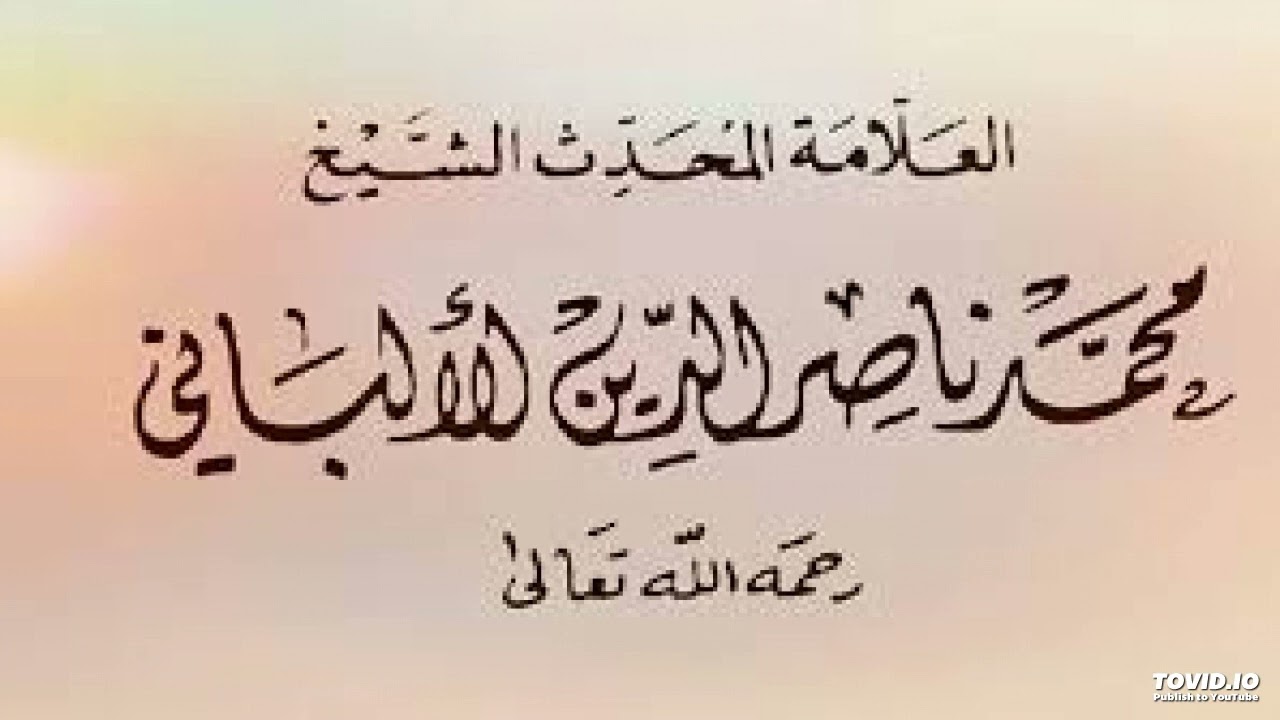 العَلَّامَة المُحَدِّث الشَّيْخ
محمَّد ناصِر الدِّين الألبَاني
رحمَه اللّه تَعَالىٰ
TOVID.IO
Publish to YouTube